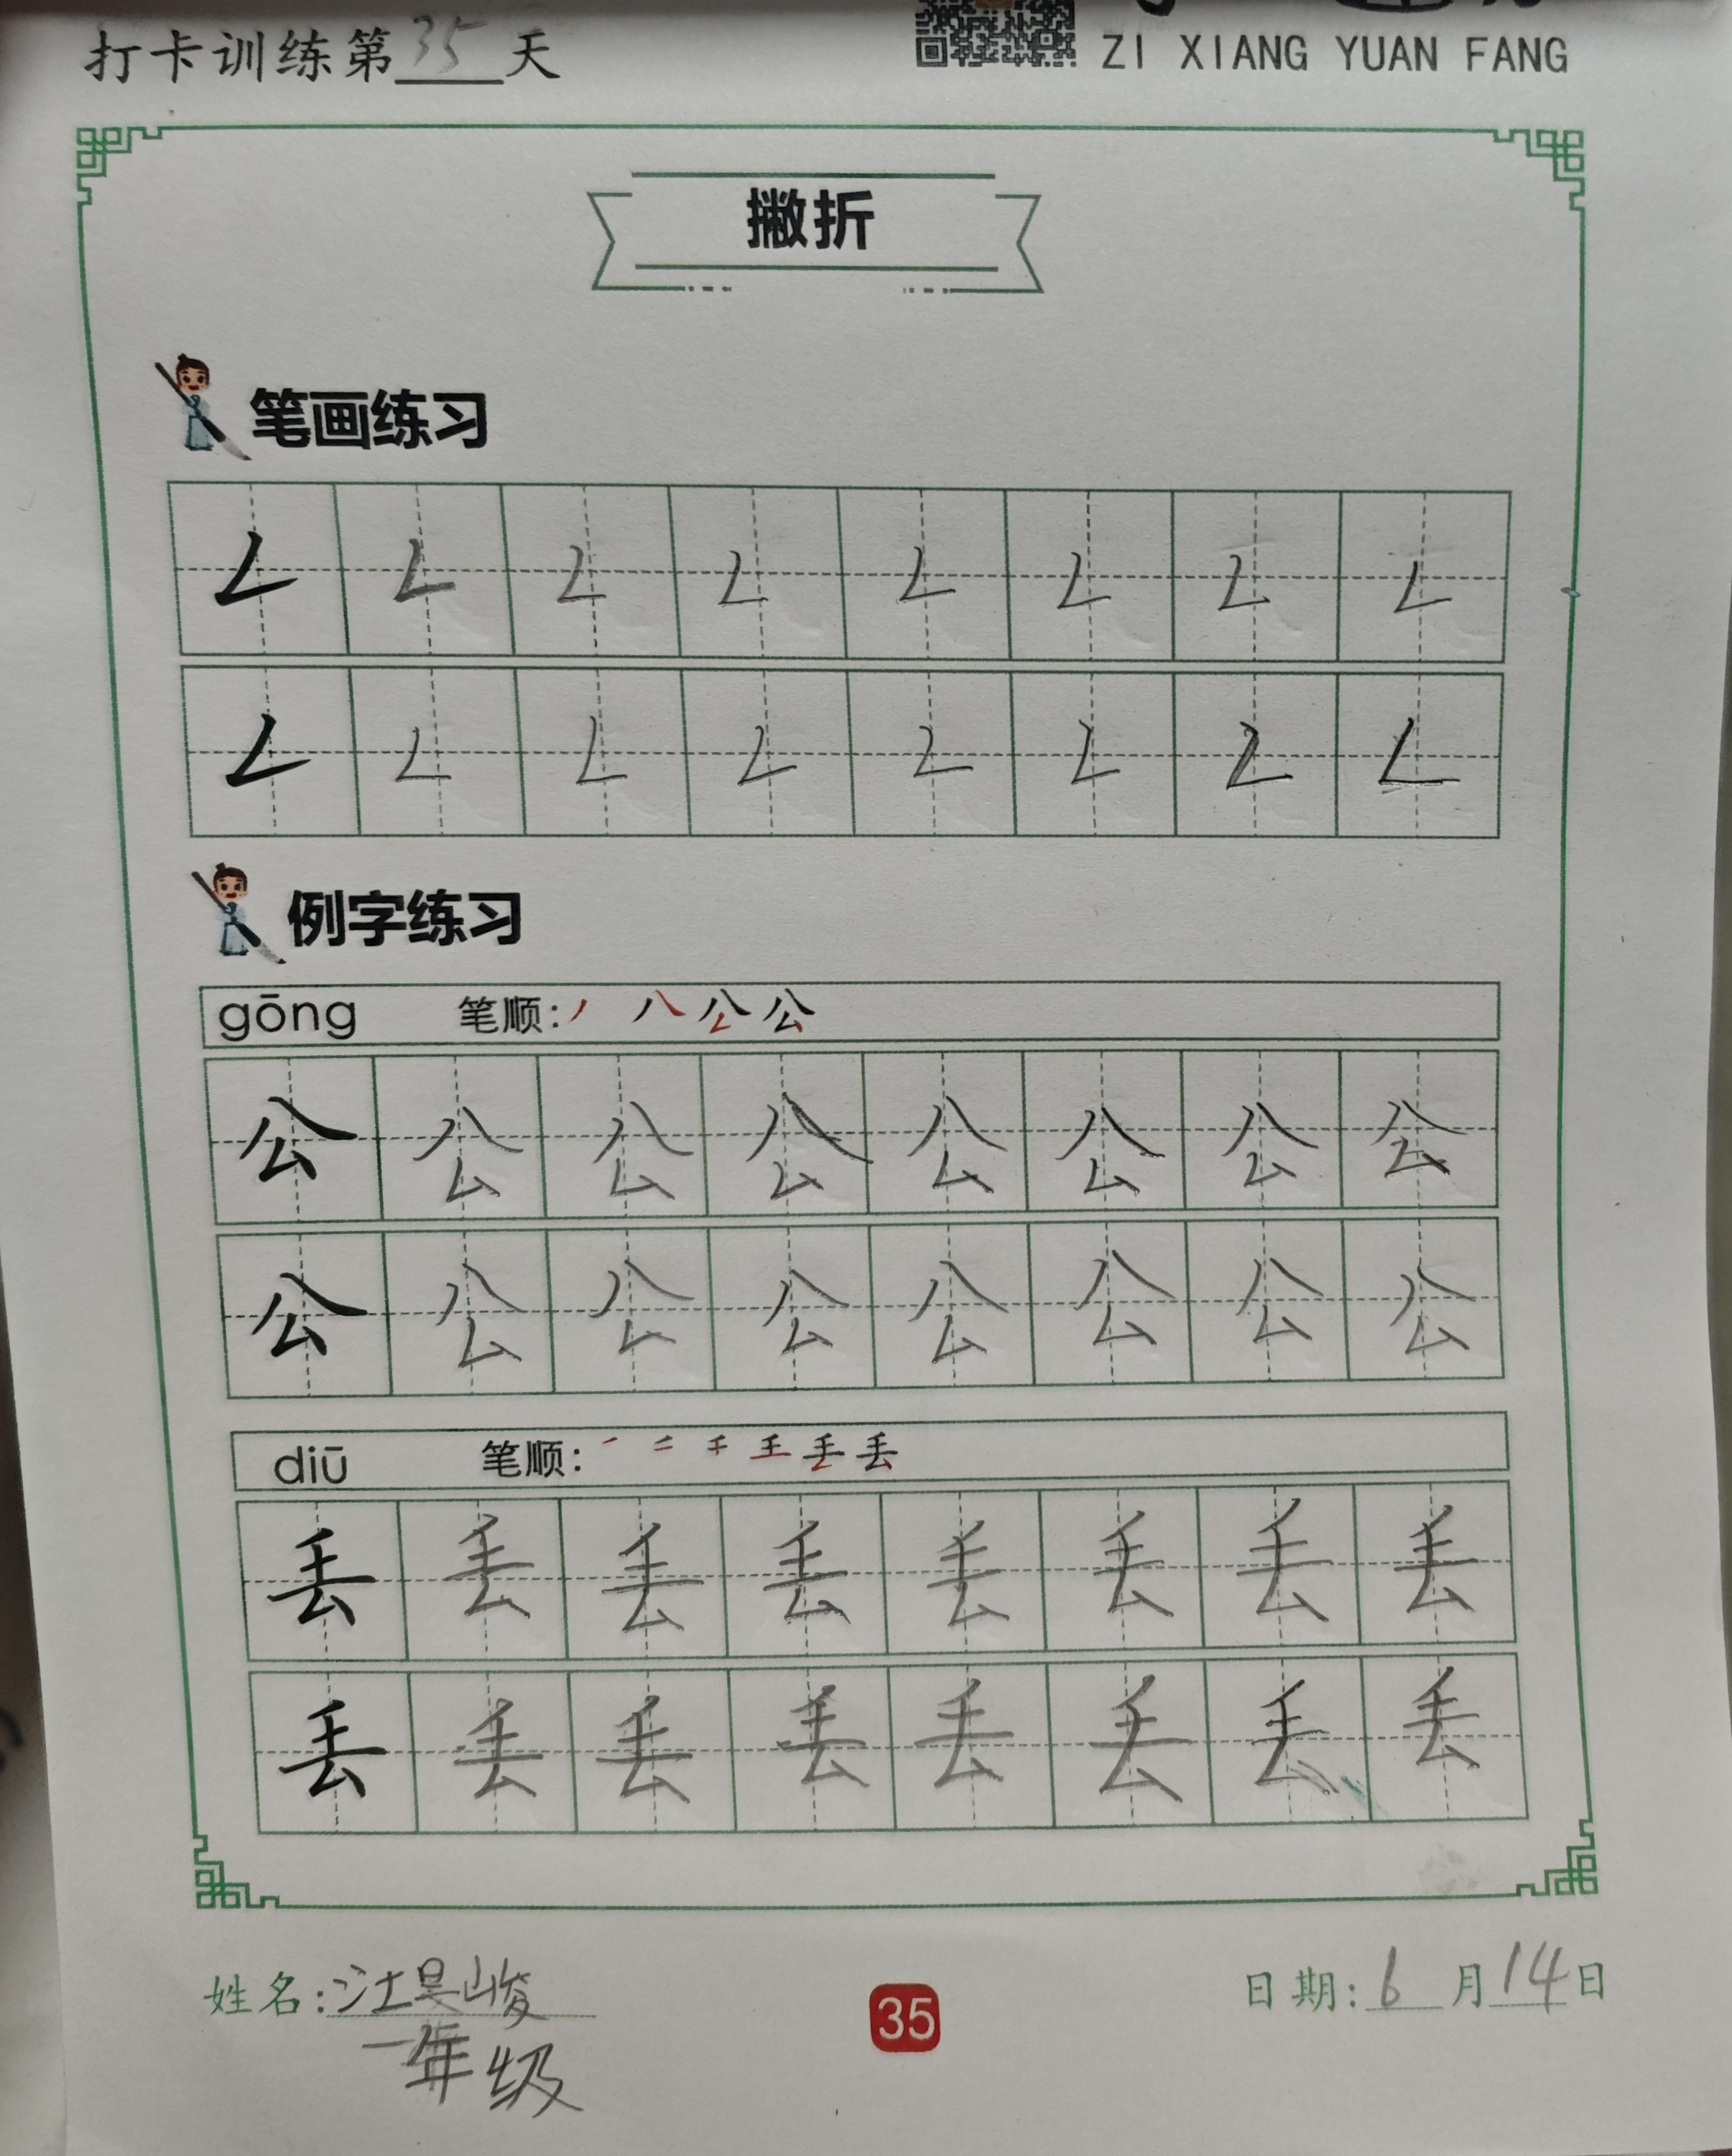 打卡训练第35天
ZI XIANG YUAN FANG
撇折
笔画练习
𠃋 𠃋 𠃋 𠃋 𠃋 𠃋 𠃋 𠃋
𠃋 𠃋 𠃋 𠃋 𠃋 𠃋 𠃋 𠃋
例字练习
gōng 笔顺:丿 八 公 公
公 公 公 公 公 公 公 公
公 公 公 公 公 公 公 公
diū 笔顺: 丢 丢
丢 丢 丢 丢 丢 丢 丢 丢
丢 丢 丢 丢 丢 丢 丢 丢
姓名:汪昊峻
一年级
35
日期:6月14日